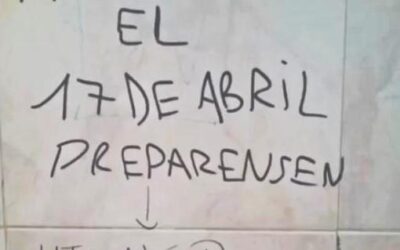 EL
17 DE ABRIL
PREPARENSEN